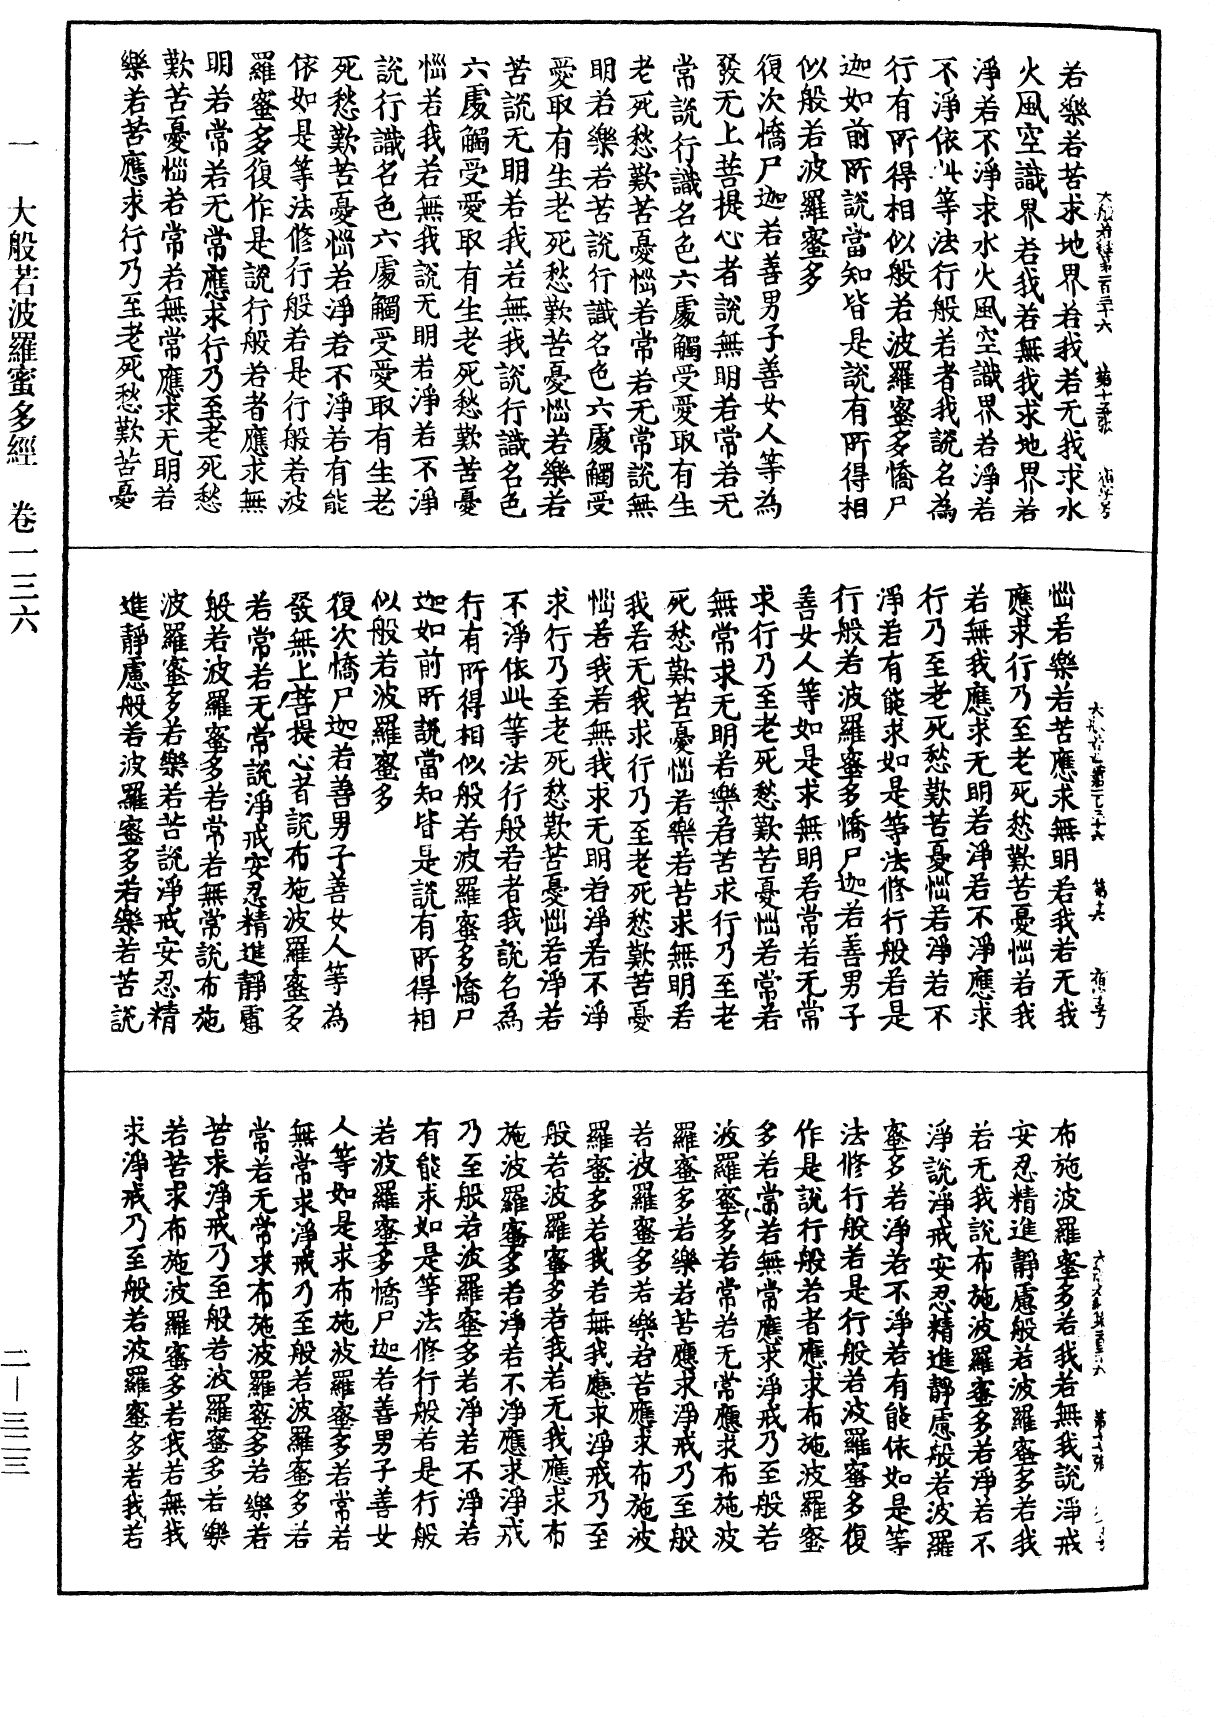 大般若經第一百三十六 第十五張
若樂若苦求地界若我若无我求水
火風空識界若我若無我求地界若
淨若不淨求水火風空識界若淨若
不淨依此等法行般若者我說名為
行有所得相似般若波羅蜜多憍尸
迦如前所說當知皆是說有所得相
似般若波羅蜜多
復次憍尸迦若善男子善女人等為
發无上菩提心者說無明若常若无
常說行識名色六處觸受愛取有生
老死愁歎苦憂惱若常若无常說無
明若樂若苦說行識名色六處觸受
愛取有生老死愁歎苦憂惱若樂若
苦說无明若我若無我說行識名色
六處觸受愛取有生老死愁歎苦憂
惱若我若無我說无明若淨若不淨
說行識名色六處觸受愛取有生老
死愁歎苦憂惱若淨若不淨若有能
依如是等法修行般若是行般若波
羅蜜多復作是說行般若者應求無
明若常若无常應求行乃至老死愁
歎苦憂惱若常若無常應求无明若
樂若苦應求行乃至老死愁歎苦憂
惱若樂若苦應求無明若我若无我
應求行乃至老死愁歎苦憂惱若我
若無我應求无明若淨若不淨應求
行乃至老死愁歎苦憂惱若淨若不
淨若有能求如是等法修行般若是
行般若波羅蜜多憍尸迦若善男子
善女人等如是求無明若常若无常
求行乃至老死愁歎苦憂惱若常若
無常求无明若樂若苦求行乃至老
死愁歎苦憂惱若樂若苦求無明若
我若无我求行乃至老死愁歎苦憂
惱若我若無我求无明若淨若不淨
求行乃至老死愁歎苦憂惱若淨若
不淨依此等法行般若者我說名為
行有所得相似般若波羅蜜多憍尸
迦如前所說當知皆是說有所得相
似般若波羅蜜多
復次憍尸迦若善男子善女人等為
發無上菩提心者說布施波羅蜜多
若常若无常說淨戒安忍精進靜慮
般若波羅蜜多若常若無常說布施
波羅蜜多若樂若苦說淨戒安忍精
進靜慮般若波羅蜜多若樂若苦說
布施波羅蜜多若我若無我說淨戒
安忍精進靜慮般若波羅蜜多若我
若无我說布施波羅蜜多若淨若不
淨說淨戒安忍精進靜慮般若波羅
蜜多若淨若不淨若有能依如是等
法修行般若是行般若波羅蜜多復
作是說行般若者應求布施波羅蜜
多若常若無常應求淨戒乃至般若
波羅蜜多若常若无常應求布施波
羅蜜多若樂若苦應求淨戒乃至般
若波羅蜜多若樂若苦應求布施波
羅蜜多若我若無我應求淨戒乃至
般若波羅蜜多若我若无我應求布
施波羅蜜多若淨若不淨應求淨戒
乃至般若波羅蜜多若淨若不淨若
有能求如是等法修行般若是行般
若波羅蜜多憍尸迦若善男子善女
人等如是求布施波羅蜜多若常若
無常求淨戒乃至般若波羅蜜多若
常若无常求布施波羅蜜多若樂若
苦求淨戒乃至般若波羅蜜多若樂
若苦求布施波羅蜜多若我若無我
求淨戒乃至般若波羅蜜多若我若
一 大般若波羅蜜多經 卷一三六
二—三二三